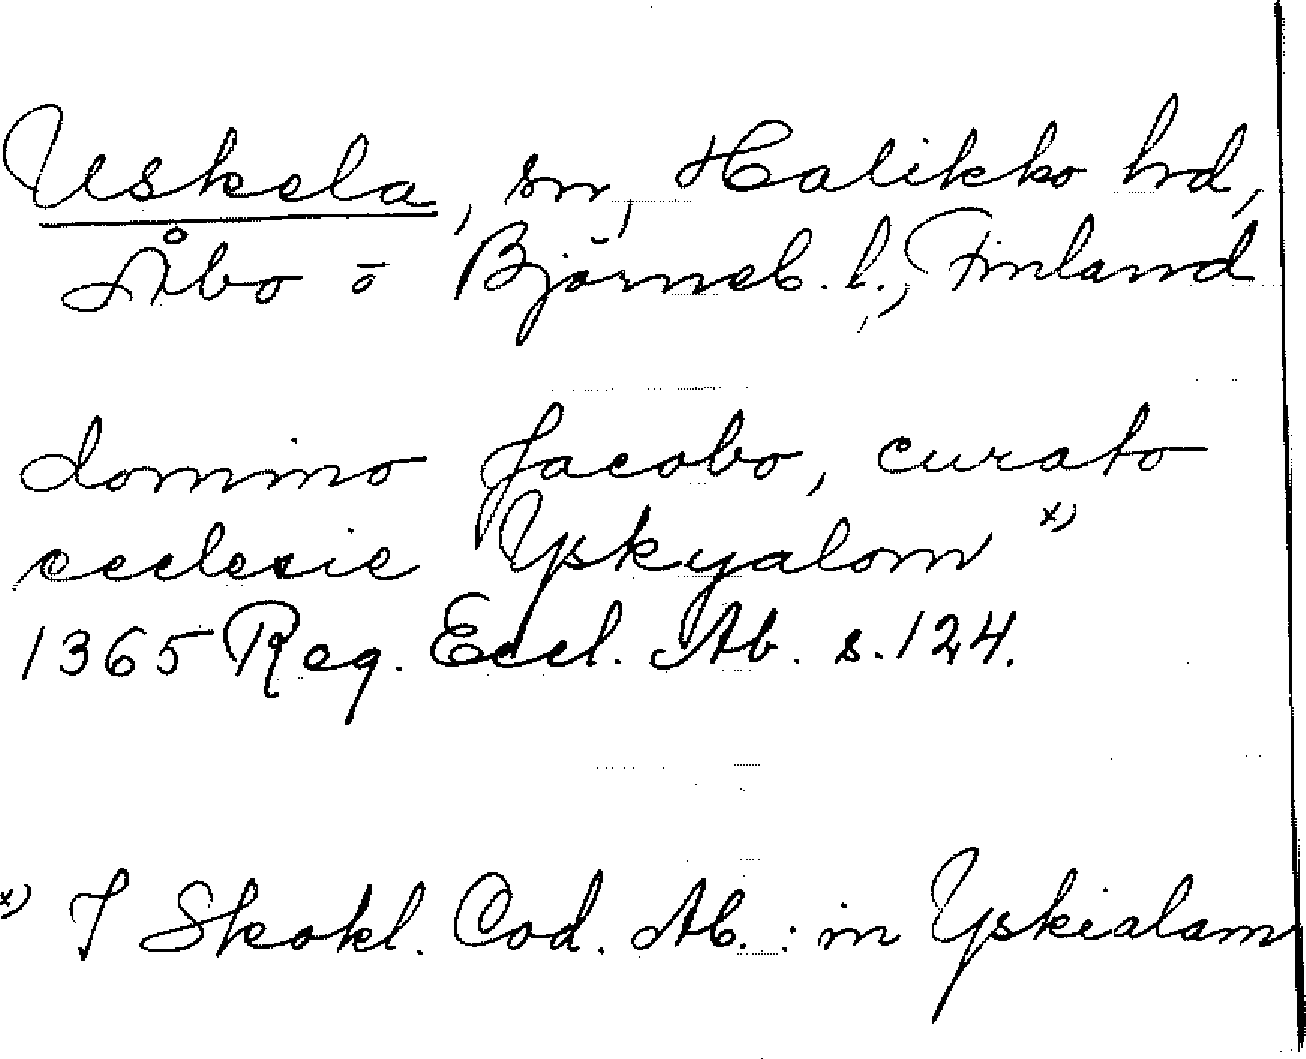 Uskela, sn, Halikko hd,
Åbo o Björneb. l., Finland
domino Jacobo, curato
ecclesie Yskyalom x)
1365 Reg. Eccl. Ab. s. 124.
x) I Skokl. Cod. Ab. : in Yskialam